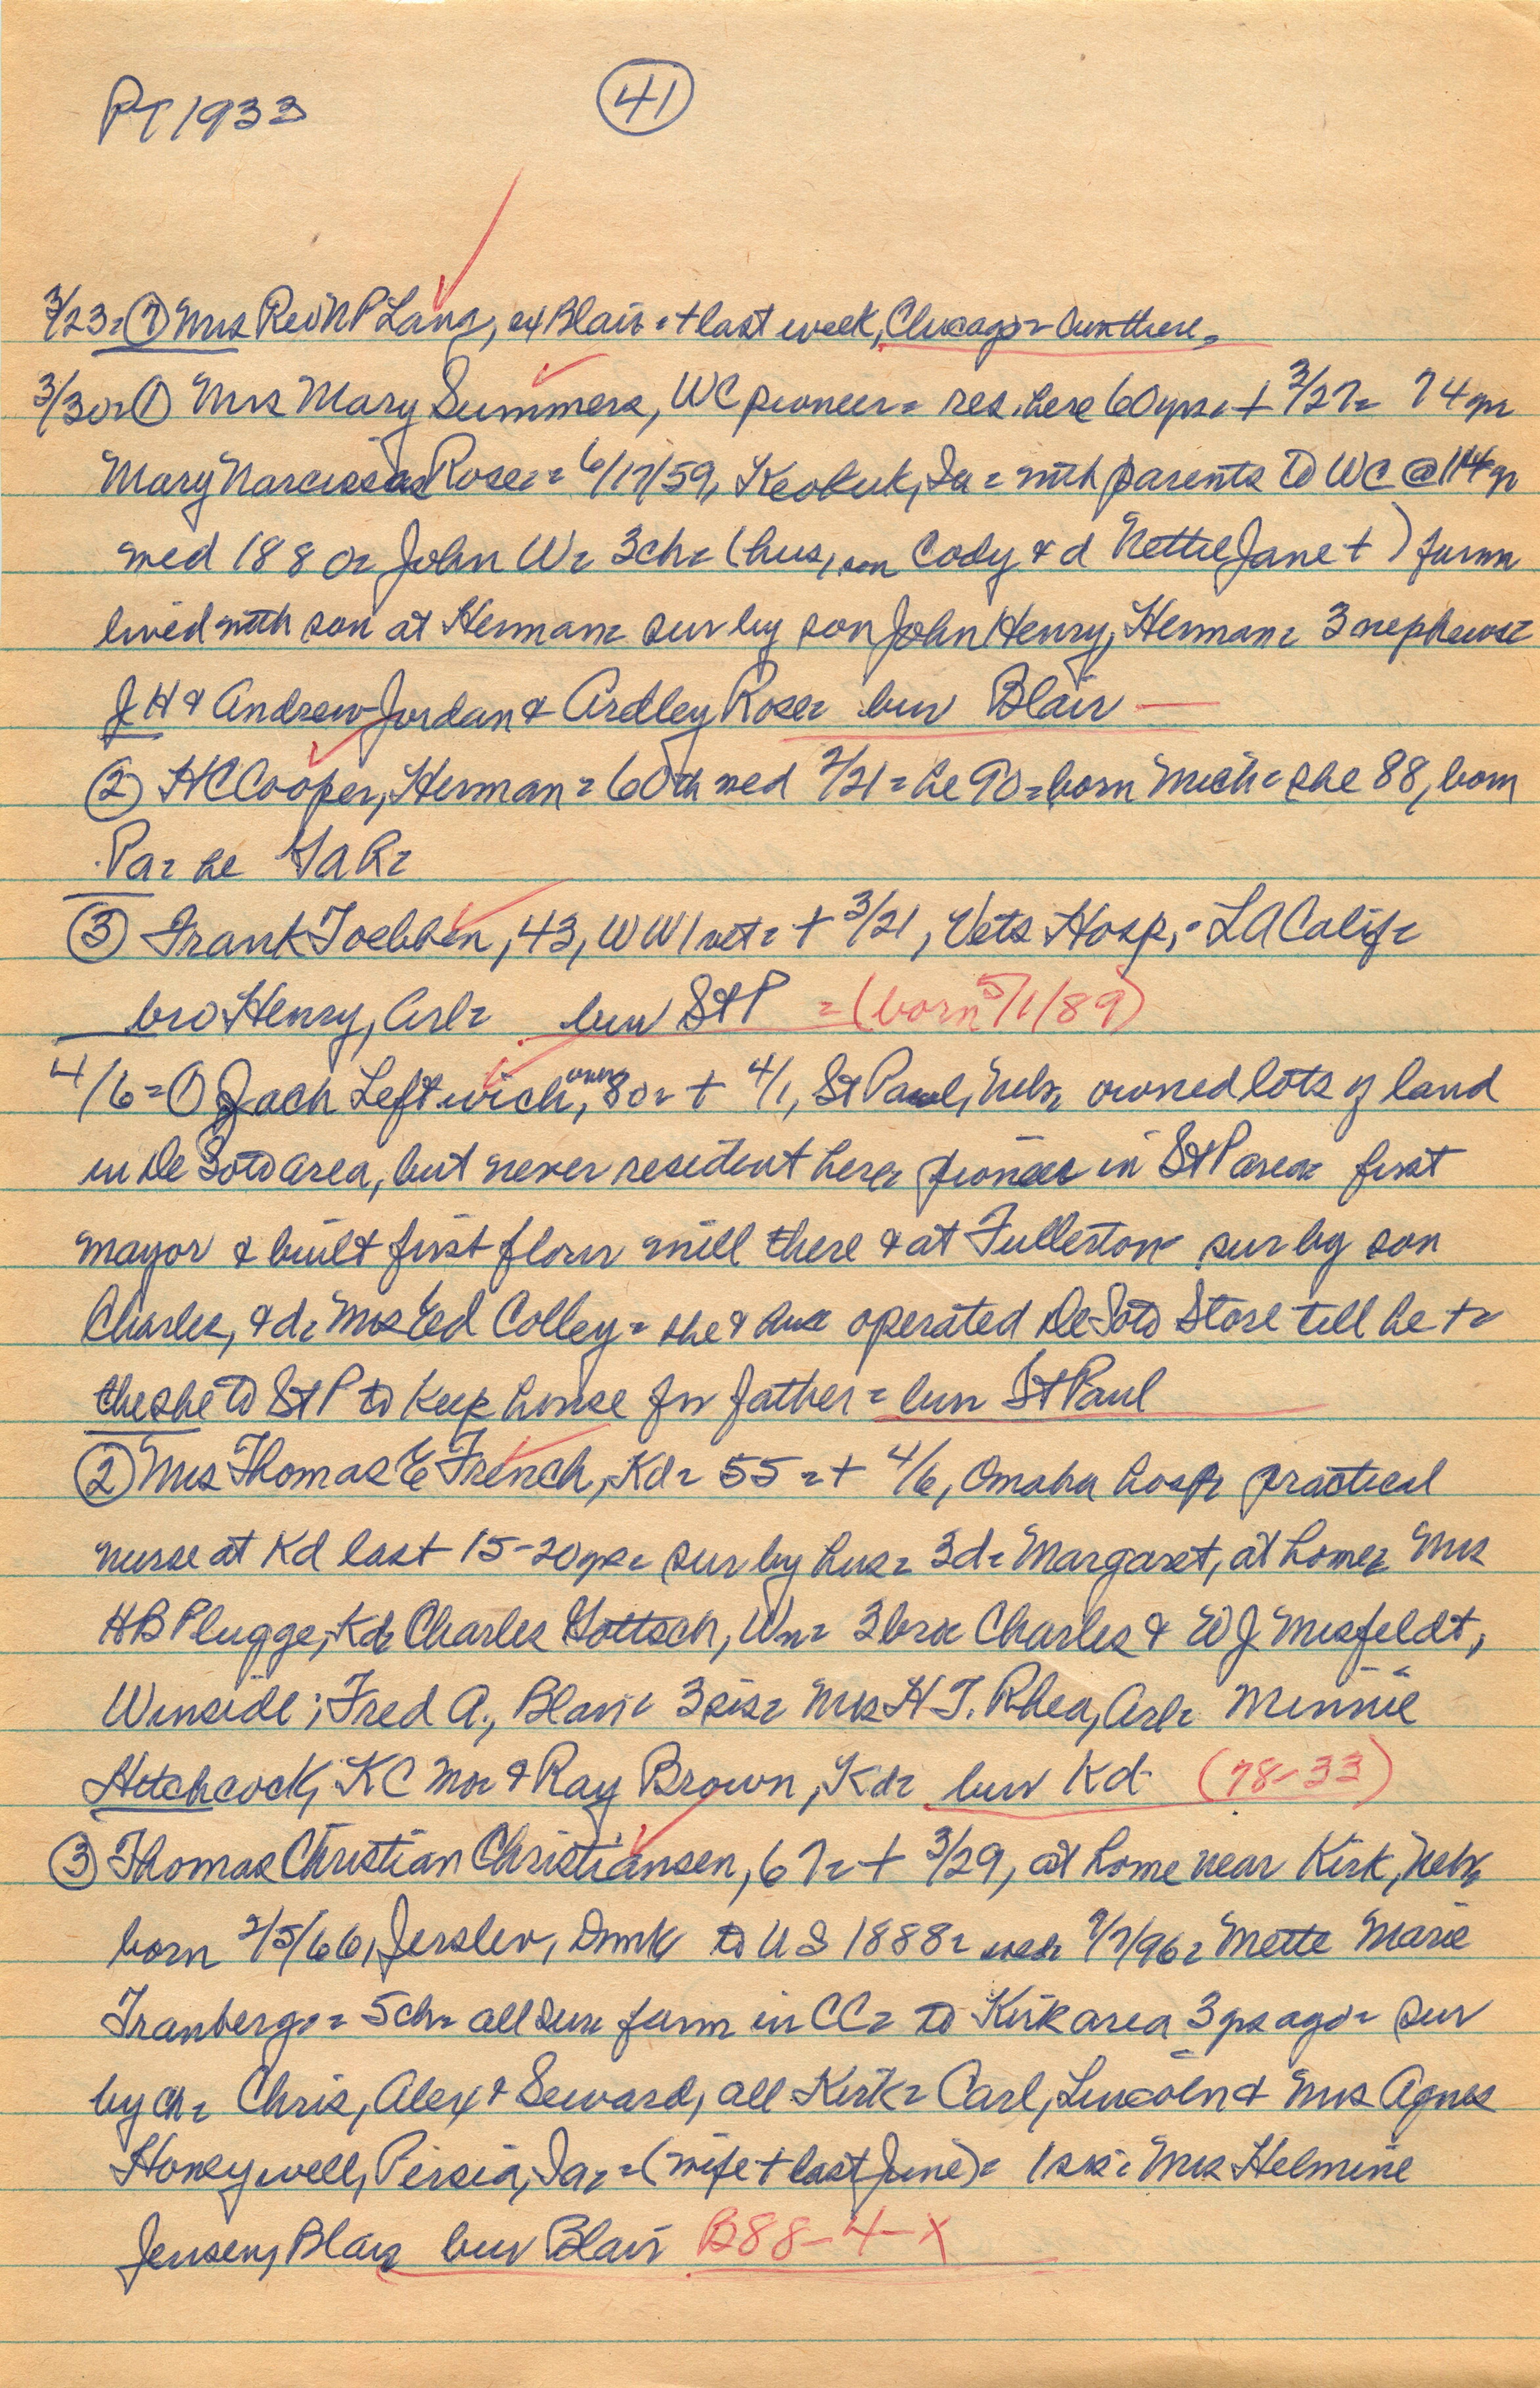 PT 1933
41
3/23= (7) Mrs Rev N P Lang, ex Blair = + last week, Chicago = bur there =
3/30= (1) Mrs Mary Summers, WC pioneer = res. here 60 yrs = + 3/27 = 74 yr
Mary Narcissas Rose = 6/17/59, Keokuk, Ia = with parents to WC @ 14 yr
wed 1880 = John W = 3 ch = (hus, son Cody & d Nettie Jane +) farm
lived with son at Herman = sur by son John Henry, Herman = 3 nephews =
J H & Andrew Jordan & Ardley Rose = bur Blair
(2) H C Cooper, Herman = 60th wed 2/21 = he 90 = born Mich = she 88, born
Pa = he GAR =
(3) Frank Toebben, 43, WW1 vet = + 3/21, Vets Hosp, = LA Calif =
bro Henry, Arl = bur St P = (born 5/1/89)
4/6 = (1) Zach Leftwich, over 80 = + 4/1, St Paul, Neb = owned lots of land
in De Soto area, but never resident here = pioneer in St P area = first
mayor & built first flour mill there & at Fullerton = sur by son
Charles, & d = Mrs Ed Colley = she & hus operated De Soto Store till he + =
the she to St P to keep house for father = bur St Paul
(2) Mrs Thomas E French, Kd = 55 = + 4/6, Omaha hosp = practical
nurse at Kd last 15-20 yrs = sur by hus = 3 d = Margaret, at home = Mrs
H B Plugge, Kd = Charles Hottsch, Wn = 3 bro = Charles & W J Misfeldt,
Winside; Fred A., Blair = 3 sis = Mrs H T. Rhea, Arl = Minnie
Hitchcock, KC Mo = & Ray Brown, Kd = bur Kd (78-33)
(3) Thomas Christian Christiansen, 67 = + 3/29, at home near Kirk, Neb =
born 2/5/66, Jerslev, Dnmk to US 1888 = wed 9/7/96 = Mette Marie
Tranberg = 5 ch = all sur = farm in CC = to Kirk area 3 yrs ago = sur
by ch = Chris, Alex & Seward, all Kirk = Carl, Lincoln & Mrs Agnes
Honeywell, Persia, Ia = (wife + last June) = 1 sis = Mrs Helmine
Jensen, Blair bur Blair B88-4-X